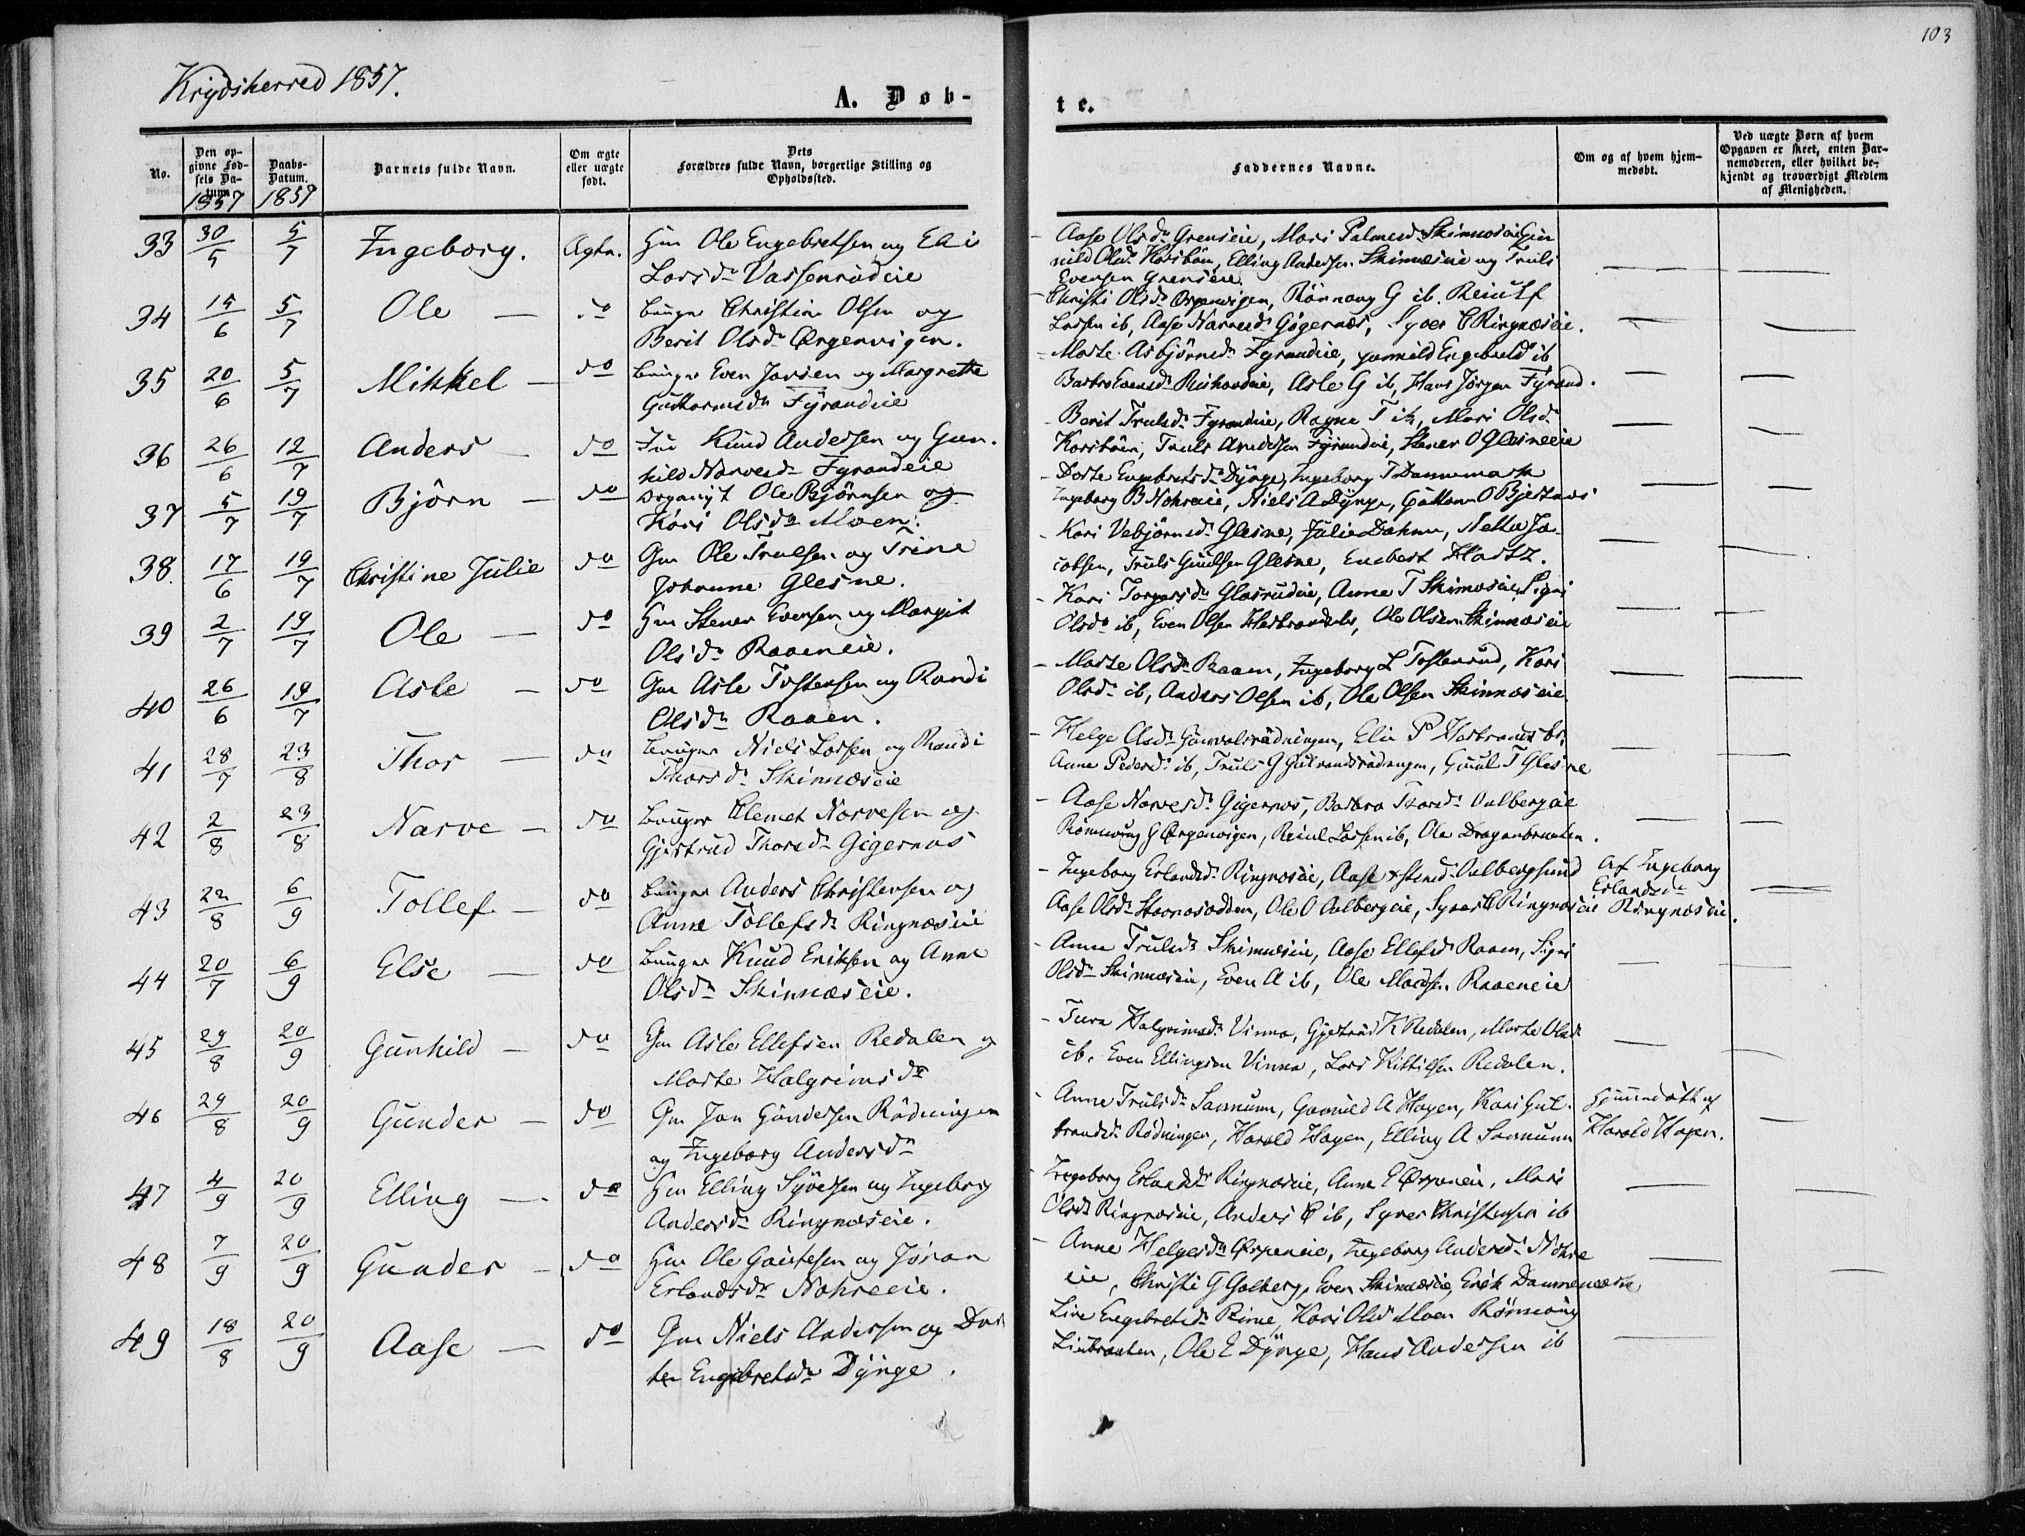 103
Krydsherred 1857.
A. Døb-
te.
No.
Den op-
givne Fød-
sels Da-
tum
1857
Daabs-
Datum.
1857
Barnets fulde Navn.
Om ægte
eller uægte
født.
Dets
Forældres fulde Navn, borgerlige Stilling og
Opholdssted.
Faddernes Navne.
Om og af hvem hjem-
medøbt.
Ved uægte Børn af hvem
Opgaven er skeet, enten Bar-
nemoderen, eller hvilket be-
kjendt og troværdigt Medlem
af Menigheden.
33 30/5 5/7 Ingeborg. Ægte. Ole Engebretsen og Eli
Larsdr Vassenrudeie
Aase Olsdr Grenseie, Mari Palmesd Skinnæseie
Olsdr Korsbøen, Elling Andersen Skinnæseie og Truls
Evensen Grenseie
34 15/6 5/7 Ole — do Christian Olsen og
Berit Olsdr Ørgenvigen.
Christi Olsdr Ørgenvigen, Rønnaug G ib. Reiulf
Larsen ib, Aase Narvesdr Gigernæs, Syver C Ringnæseie.
35 20/6 5/7 Mikkel — do Even Jonsen og Margrethe
Guttormsdr Fyrandeie
Marte Asbjørnsdr Fyrandeie, Engebretsd ib
Barbro Evensdr, Asle G ib, Hans Jørgen Fyrand.
36 26/6 12/7 Anders — do Knud Andersen og Gun-
hild Narvesdr Fyrandeie
Berit Trulsdr Fyrandeie, Ragne T ib, Mari Olsdr
Korsbøen, Truls Andersen Fyrandeie, Stener O Glesneeie
37 5/7 19/7 Bjørn — do Ole Bjørnsen og
Kari Olsdr Moen.
Dorte Engebretsdr Dynge, Ingeborg T Dannemark
Ingeborg B Nohreeie, Niels A Dynge, Guttorm O
38. 17/6 19/7 Christine Julie do Gm Ole Trulsen og Trine
Johanne Glesne.
Kari Vebjørnsdr Glesne, Julie Dahm, Ja-
cobsen, Truls Gulsen Glesne, Engbert Hartz.
39 2/7 19/7 Ole — do Stener Evensen og Margit
Olsdr Raaeneie.
Kari Torgersdr Glasrudeie, Anne T Skinnæseie, Sigri
Olsdr ib, Even Olsen, Ole Olsen Skinnæseie
40 26/6 19/7 Asle — do Gm Asle Tostensen og Randi
Olsdr Raaen.
Marte Olsdr Raaen, Ingeborg L Tostenrud, Kari
Olsdr ib, Anders Olsen ib, Ole Olsen Skinnæseie
41 28/7 23/8 Thor — do Niels Larsen og Randi
Thorsdr Skinnæseie
Helge Asdr, Elie P
Anne Pedersdr ib, Truls G, Gunl T Glesne
42 2/8 23/8 Narve — do Clemet Narvesen og
Gjertrud Thorsdr Gigernæs
Aase Narvesdr Gigernæs, Barbro Thorsdr Aalbergeie
Rønnaug G Ørgenvigen, Reiul Larsen ib, Ole Dragonbraaten.
43 22/8 6/9 Tollef — do Anders Christensen og
Anne Tollefsdr Ringnæseie
Ingeborg Erlandsdr Ringnæseie, Aase Aalbergsund
Aase Olsdr, Ole O Aalbergeie, Syver C Ringnæseie
Af Ingeborg
Erlandsdr
Ringnæseie.
44 20/7 6/9 Else — do Knud Eriksen og Anne
Olsdr Skinnæseie.
Anne Trulsdr Skinnæseie, Aase Ellefsd Raaen, Sigri
Olsdr Skinnæseie, Even A ib, Ole Madsen Raaeneie
45 29/8 20/9 Gunhild — do Gm Asle Ellefsen Redalen og
Marte Halgrimsdr
Ture Halgrimsdr Vinna, Gjertrud K Redalen, Marte Olsdr
ib, Even Ellingsen Vinna, Lars Kittilsen Redalen.
46 29/8 20/9 Gunder — do Gm Jon Gundersen Rødningen
og Ingeborg Andersdr
Anne Trulsdr, A Hagen, Kari Gul-
brandsdr Rødningen, Harald Hagen, Elling A
Hjemmedøbt af
Harald Hagen.
47 4/9 20/9 Elling — do Elling Syversen og Ingeborg
Andersdr Ringnæseie.
Ingeborg Erlandsdr Ringnæseie, Anne E, Mari
Olsdr Ringnæseie, Anders C ib, Syver Christensen ib
48 7/9 20/9 Gunder — do Ole Gautesen og Jøran
Erlandsdr Nohreeie.
Anne Helgesdr, Ingeborg Andersdr Nohre
eie, Christi G Golberg, Even Skinnæseie, Erik Dannemark
49 18/8 20/9 Aase — do Gm Niels Andersen og Dor
te Engebretsdr Dynge.
Live Engebretsdr Rime, Kari Olsdr Moen Rønnaug
Ole E Dynge, Hans Andersen ib